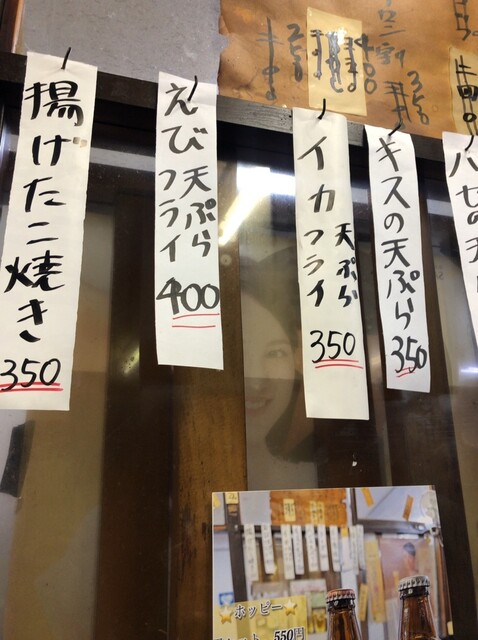 揚げたこ焼き
350
えび 天ぷら
フライ
400
イカ 天ぷら
フライ
350
キスの天ぷら
350
ハゼの天
350
400
350
ホッピー
550円